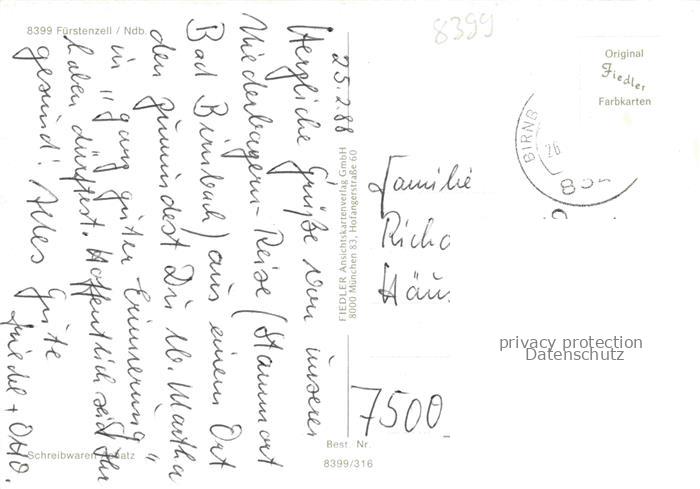 8399 Fürstenzell / Ndb.
25.2.88
Herzliche Grüße von unserer
Niederbayern-Reise (Stammort
Bad Birnbach) aus einem Ort
den zumindest Du lb. Martha
in "ganz guter Erinnerung"
haben dürftest. Hoffentlich seid Ihr
gesund! Alles Gute
Friedel + Otto.
Schreibwaren
FIEDLER Ansichtskartenverlag GmbH
8000 München 83, Hofangerstraße 60
Best. Nr.
8399/316
8399
Original
Fiedler
Farbkarten
BIRNB
26
Familie
Richa
Häu
7500
privacy protection
Datenschutz